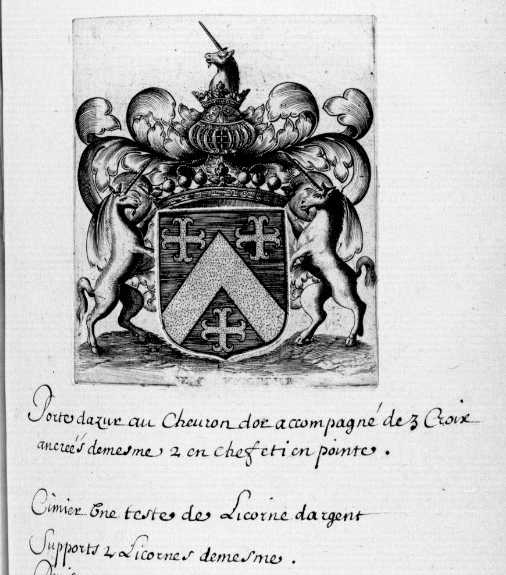 Porte dazur au Cheuron dor accompagné de 3 Croix
ancreés demesme 2 en chef et i en pointe .
Cimier Vne teste de Licorne dargent
Supports 2 Licornes demesme .